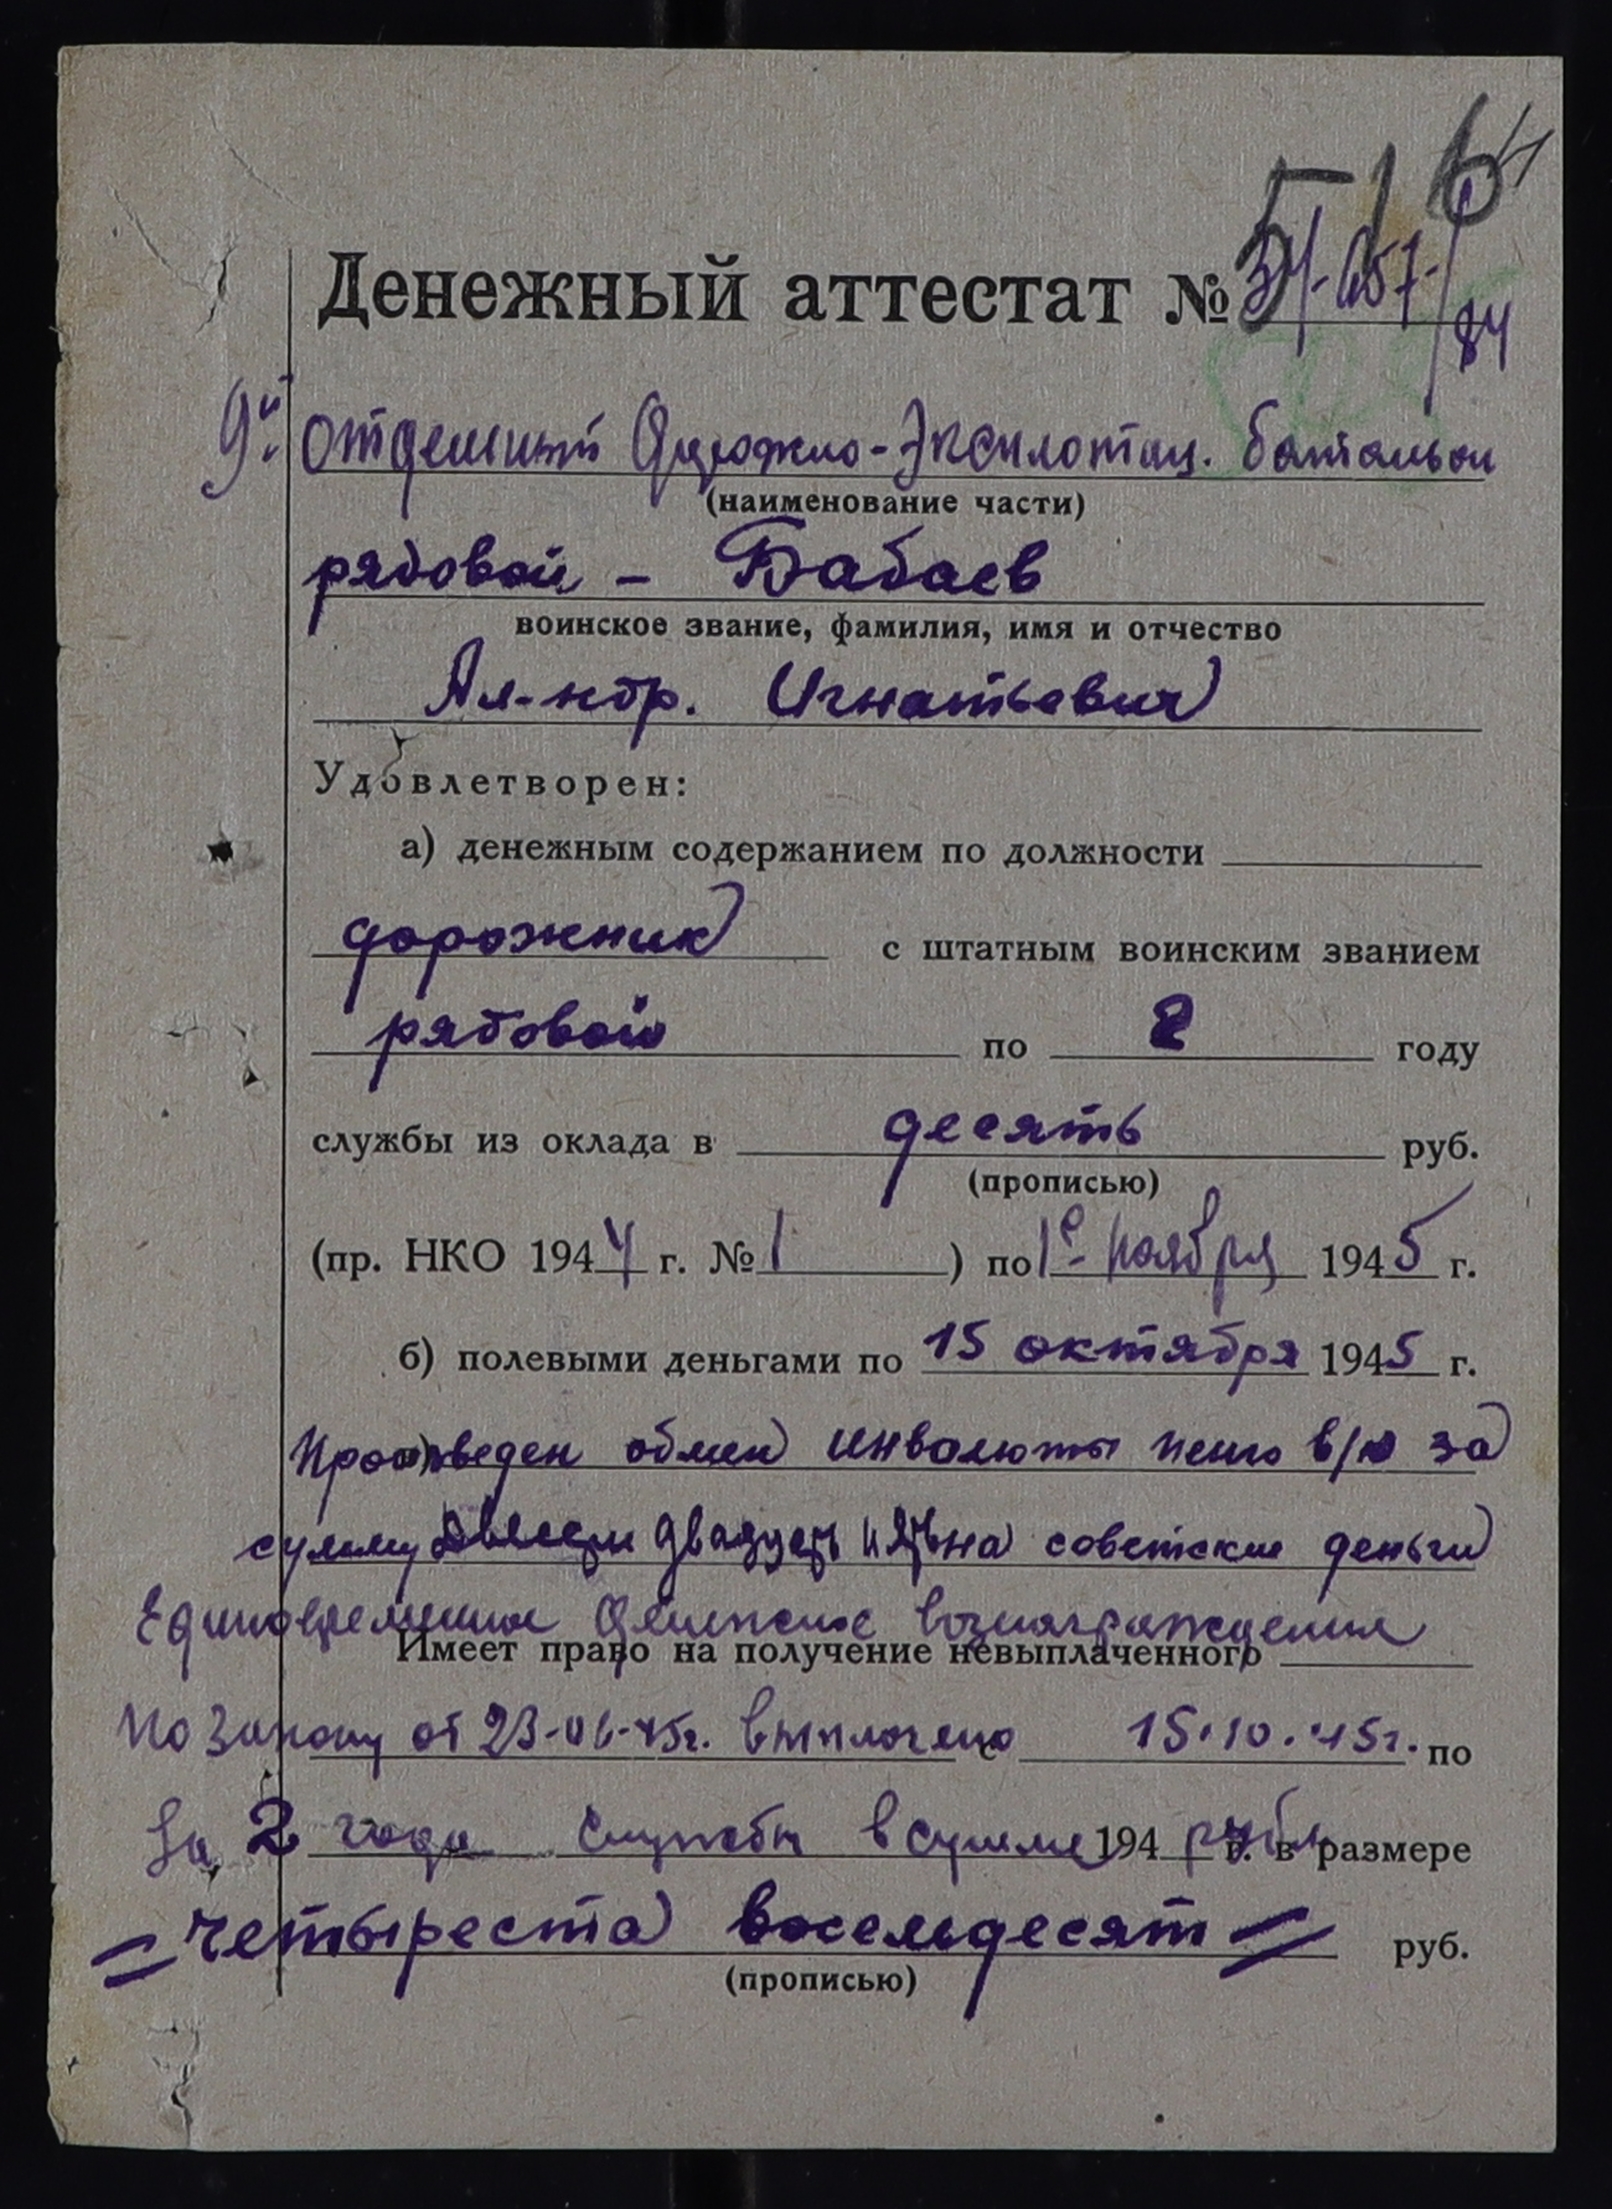 516
Денежный аттестат № 34-657-/84
9й отдельный Дорожно-Эксплотац. батальон
(наименование части)
рядовой – Бабаев
воинское звание, фамилия, имя и отчество
Ал-ндр. Игнатьевич
Удовлетворен:
а) денежным содержанием по должности
дорожник с штатным воинским званием
рядовой по 2 году
службы из оклада в десять руб.
(прописью)
(пр. НКО 1944 г. № 1 ) по 1е ноября 1945 г.
б) полевыми деньгами по 15 октября 1945 г.
Произведен обмен инвалюты пенго в/ю за
сумму двадцать на советские деньги
Единовременное Денежное вознаграждение
Имеет право на получение невыплаченного
по Закону от 23-06-45г. выплочено с 15.10.45г. по
За 2 года службы в сумме 194 рубл г. в размере
= четыреста восемьдесят = руб.
(прописью)